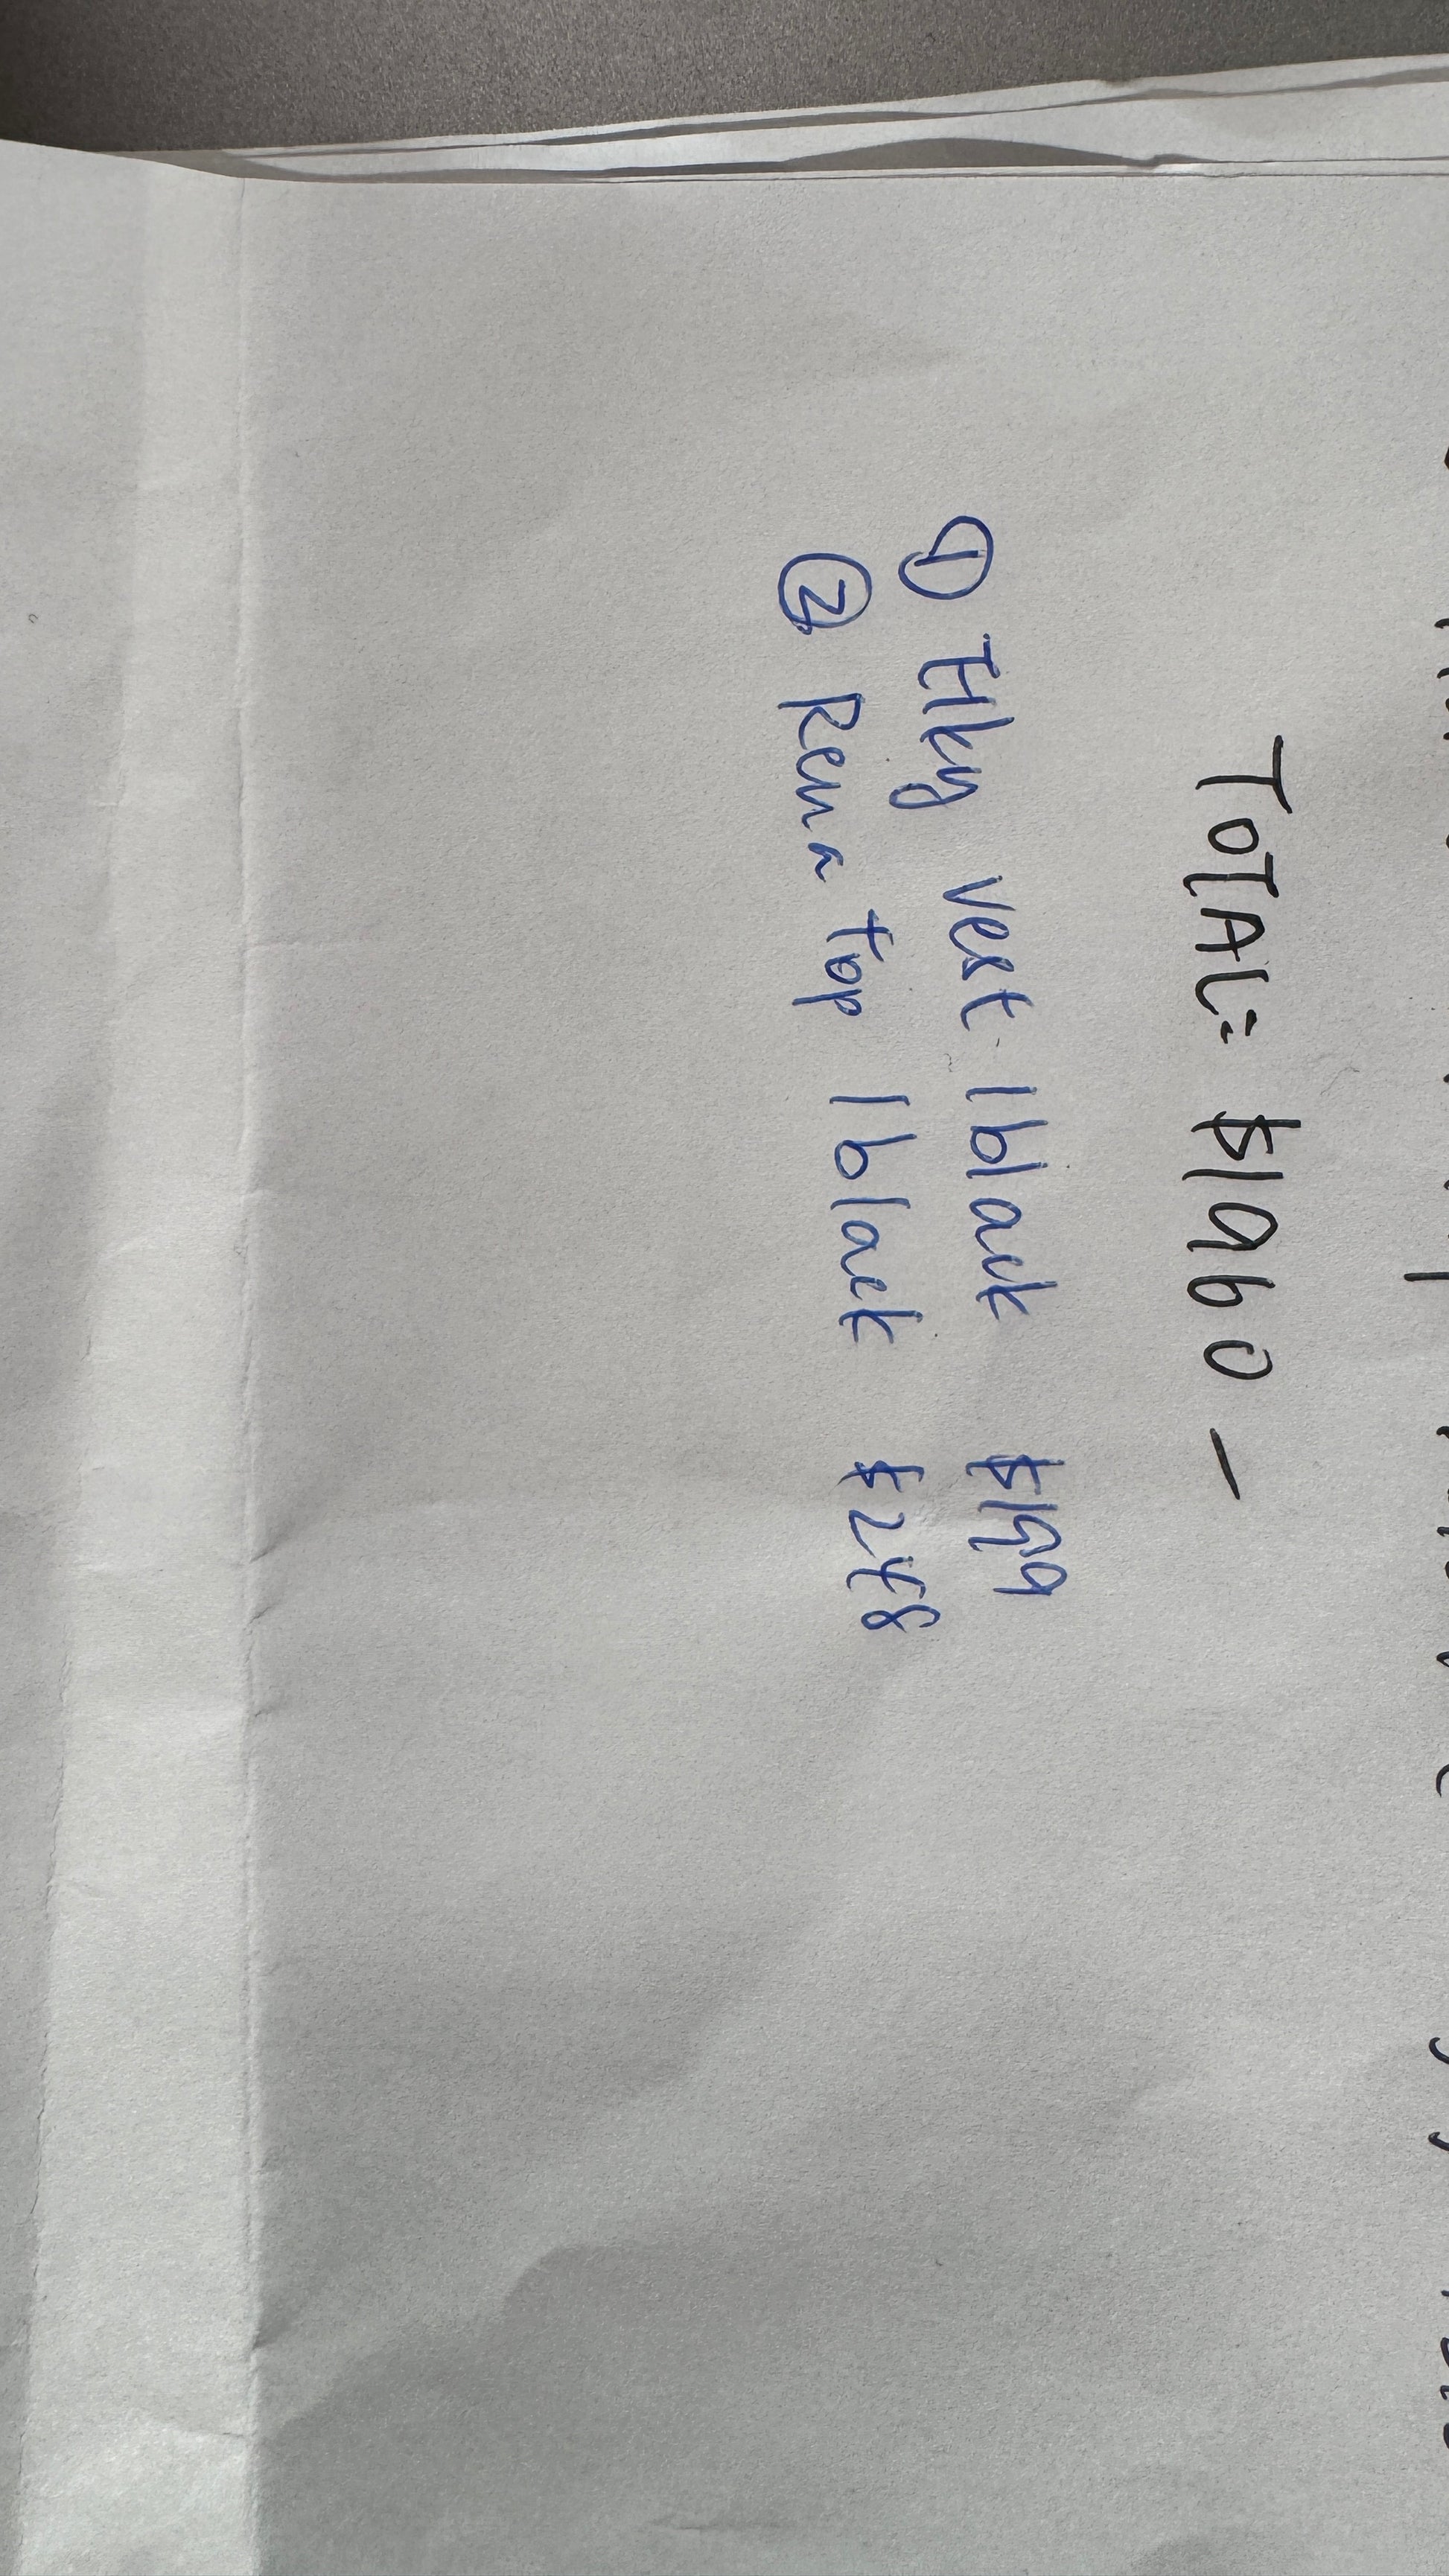 TOTAL= $1960 —
① Hky vest 1 black $159
② Rena top 1 black $248